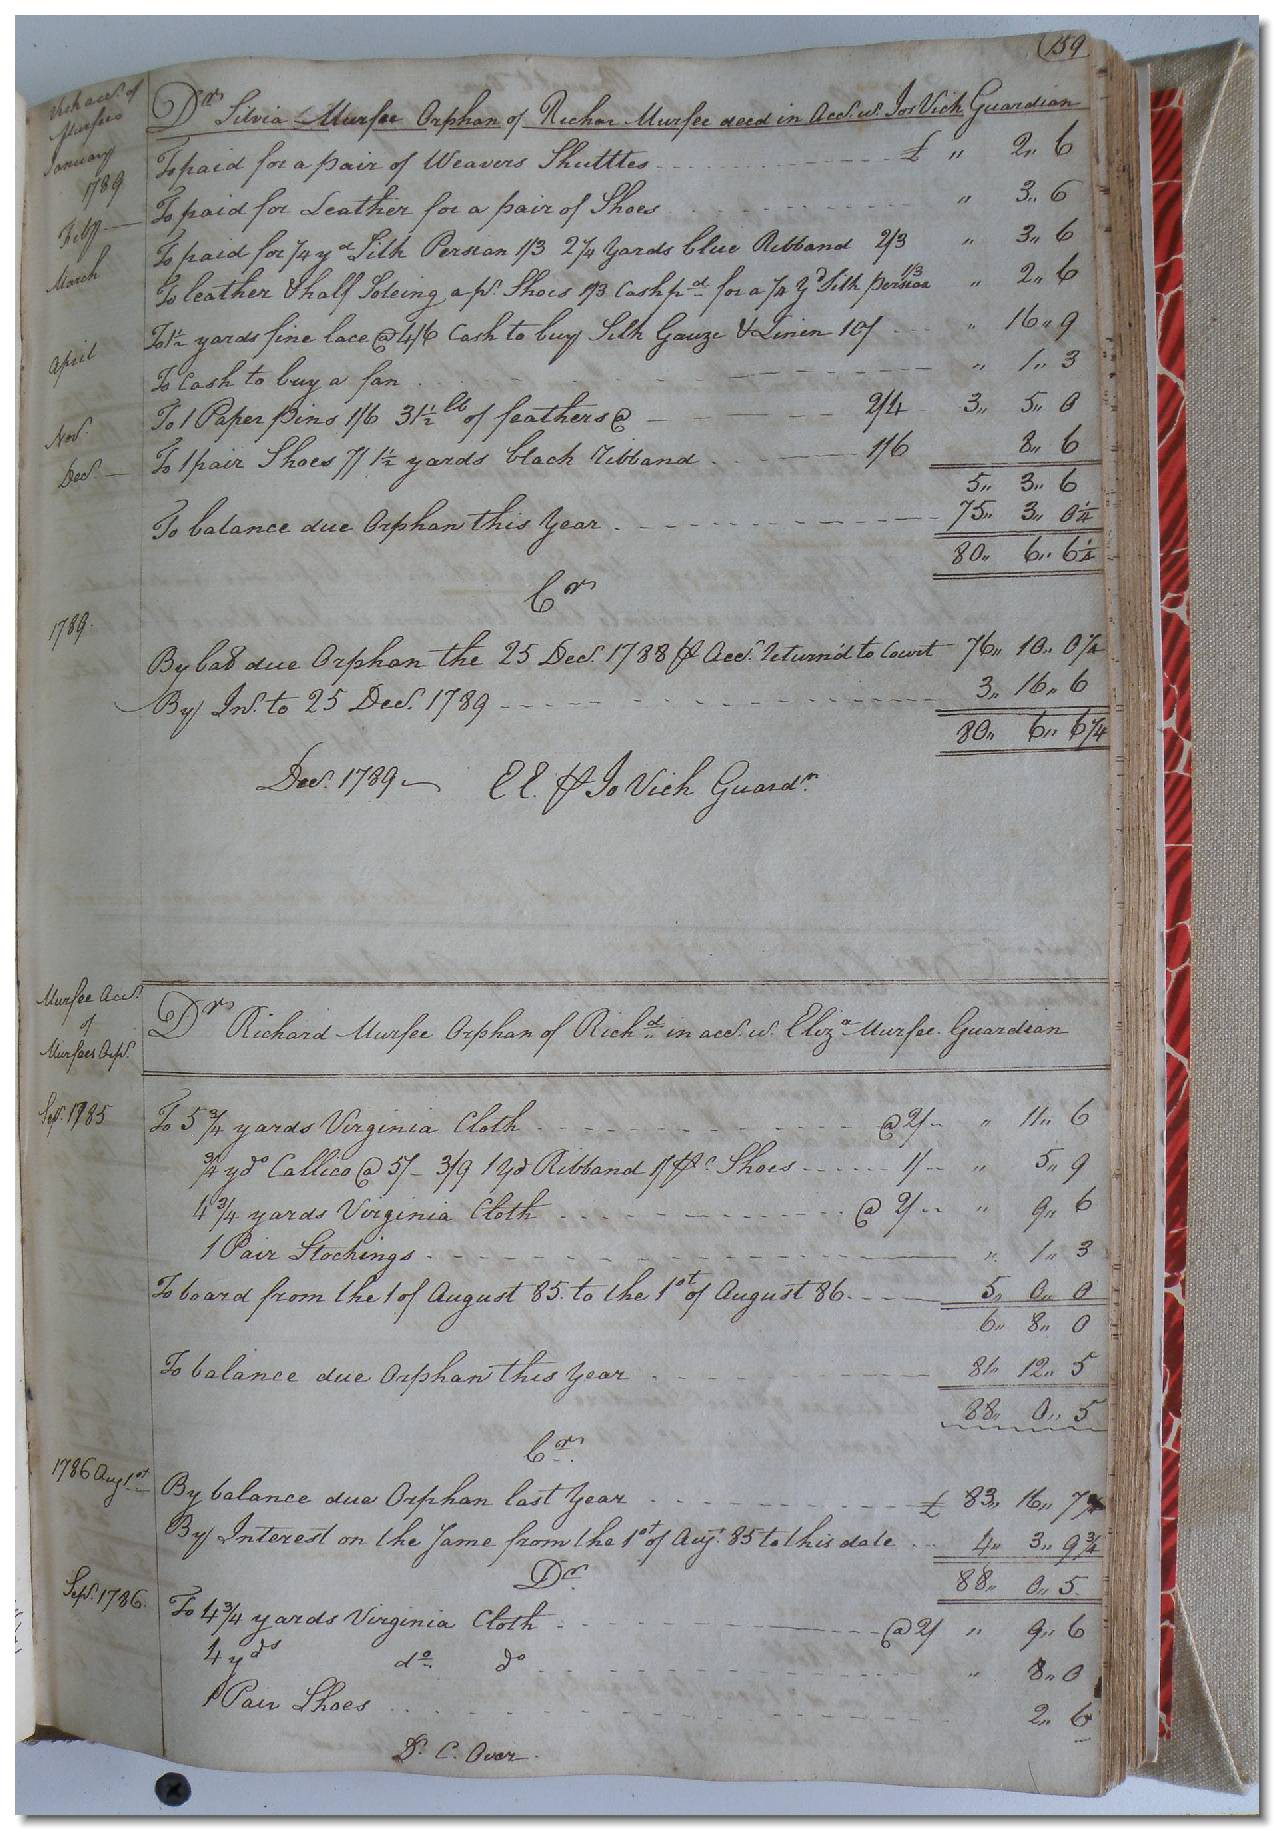 159
Vick acct. of
Murfees
Dr. Silvia Murfee Orphan of Richar Murfee decd in Acct. w. Jos Vick Guardian
January
1789
To paid for a pair of Weavers Shuttles £ " 2" 6
Feby To paid for Leather for a pair of Shoes " 3" 6
March To paid for 3/4 yd Silk Persian 1/3 2 1/4 yards blue Ribband 2/3 " 3" 6
To leather & half Soleing a pr. Shoes 1/3 Cash pd for a 1/4 yd Silk persian 1/3 " 2" 6
April To 1 1/2 yards fine lace @ 4/6 Cash to buy Silk Gauze & Linen 10/ " 16" 9
To Cash to buy a fan " 1" 3
Nov. To 1 Paper pins 1/6 31 1/2 lb of feathers @ 2/4 3" 5" 0
Dec. To 1 pair Shoes 7/ 1 1/2 yards black ribband 1/6 8" 6
5" 3" 6
To balance due Orphan this Year 75" 3" 0 1/4
80" 6" 6 1/4
Cr
1789.
By bal due Orphan the 25 Dec. 1788 ⅌ Acct. return'd to Court 76" 10" 0 1/4
By Int. to 25 Dec. 1789 3" 16" 6
80" 6" 6 1/4
Dec. 1789 E E. ⅌ Jo Vick Guardn.
Murfee Acct.
of
Murfees Orp.
Dr Richard Murfee Orphan of Richd in acct. w. Eliza Murfee Guardian
Sepr. 1785 To 5 3/4 yards Virginia Cloth @ 2/ " 11" 6
3/4 yds Callico @ 5/ 3/9 1 yd Ribband 1/ pr Shoes 1/ " 5" 9
4 3/4 yards Virginia Cloth @ 2/ " 9" 6
1 Pair Stockings " 1" 3
To board from the 1 of August 85. to the 1st of August 86. 5" 0" 0
6" 8" 0
To balance due Orphan this Year 81" 12" 5
88" 0" 5
Cr.
1786 Augt 1st By balance due Orphan last Year £ 83" 16" 7
By Interest on the Same from the 1st of Aug. 85 to this date 4" 3" 9 3/4
88" 0" 5
Dr.
Sepr. 1786. To 4 3/4 yards Virginia Cloth @ 2/ " 9" 6
4 yds do do " 8" 0
1 Pair Shoes 2" 6
Dr. C. Over.